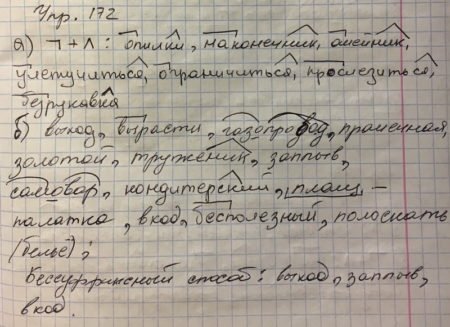 Упр. 172
а) ¬ + ^ : опилки, наконечник, ошейник,
улетучиться, ограничиться, прослезиться,
безрукавка
б) выход, вырасти, газопровод, прачечная,
золотой, труженик, заплыв,
самовар, кондитерский, плащ –
палатка, вход, бесполезный, полоскать
(бельё);
Бессуффиксный способ: выход, заплыв,
вход.